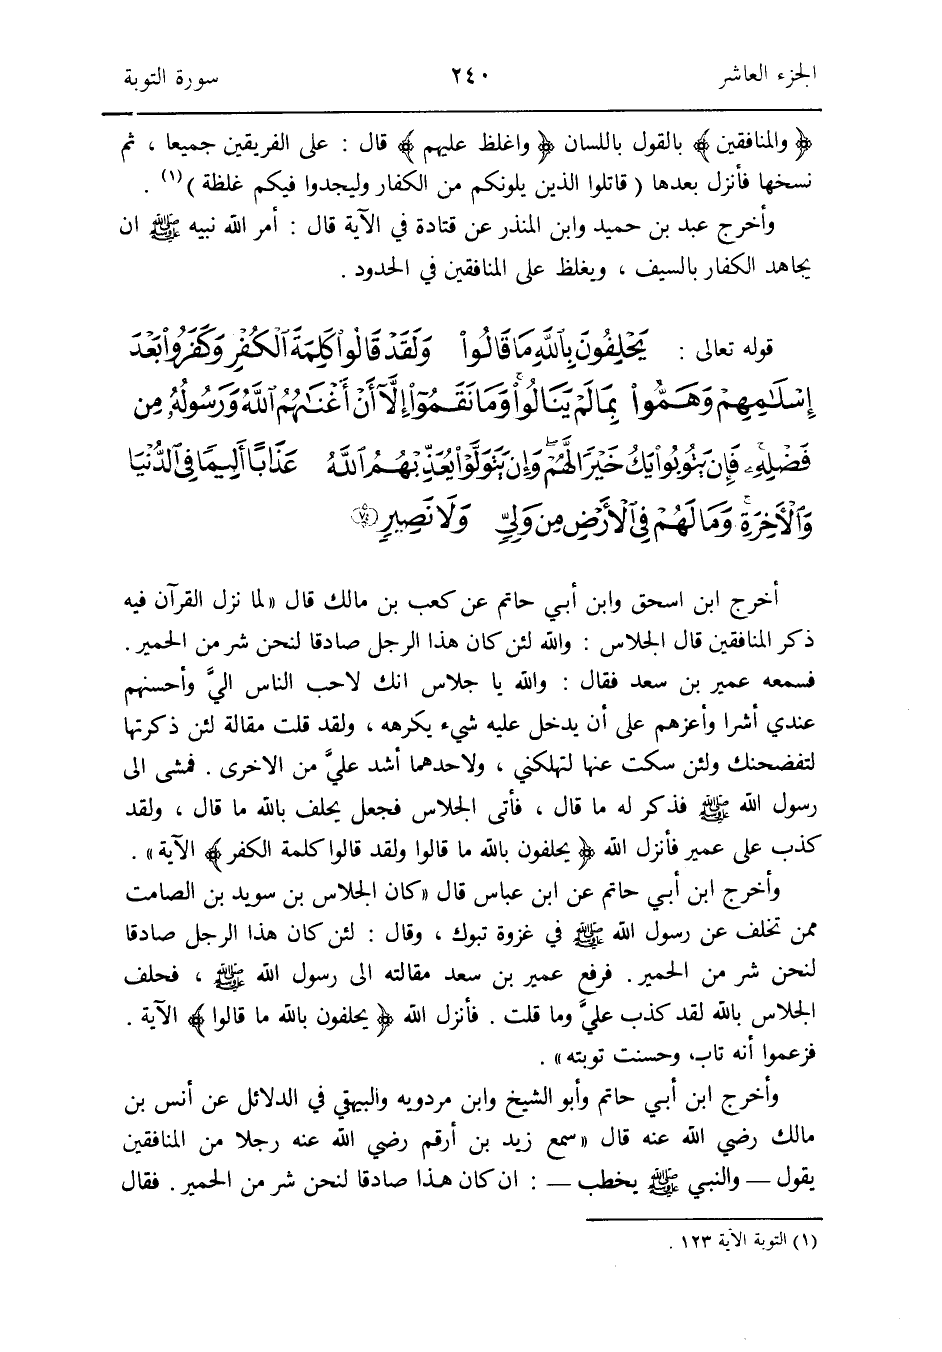 الجزء العاشر ٢٤٠ سورة التوبة
﴿ والمنافقين ﴾ بالقول باللسان ﴿ واغلظ عليهم ﴾ قال : على الفريقين جميعا ، ثم
نسخها فأنزل بعدها ( قاتلوا الذين يلونكم من الكفار وليجدوا فيكم غلظة )(١) .
وأخرج عبد بن حميد وابن المنذر عن قتادة في الآية قال : أمر الله نبيه ﷺ ان
يجاهد الكفار بالسيف ، ويغلظ على المنافقين في الحدود .
قوله تعالى : يَحْلِفُونَ بِٱللَّهِ مَا قَالُوا۟ وَلَقَدْ قَالُوا۟ كَلِمَةَ ٱلْكُفْرِ وَكَفَرُوا۟ بَعْدَ
إِسْلَٰمِهِمْ وَهَمُّوا۟ بِمَا لَمْ يَنَالُوا۟ ۚ وَمَا نَقَمُوٓا۟ إِلَّآ أَنْ أَغْنَىٰهُمُ ٱللَّهُ وَرَسُولُهُۥ مِن
فَضْلِهِۦ ۚ فَإِن يَتُوبُوا۟ يَكُ خَيْرًا لَّهُمْ ۖ وَإِن يَتَوَلَّوْا۟ يُعَذِّبْهُمُ ٱللَّهُ عَذَابًا أَلِيمًا فِى ٱلدُّنْيَا
وَٱلْأَخِرَةِ ۚ وَمَا لَهُمْ فِى ٱلْأَرْضِ مِن وَلِىٍّ وَلَا نَصِيرٍ ﴿٧٤﴾
أخرج ابن اسحق وابن أبي حاتم عن كعب بن مالك قال «لما نزل القرآن فيه
ذكر المنافقين قال الجلاس : والله لئن كان هذا الرجل صادقا لنحن شر من الحمير .
فسمعه عمير بن سعد فقال : والله يا جلاس انك لاحب الناس اليَّ وأحسنهم
عندي أشرا وأعزهم على أن يدخل عليه شيء يكرهه ، ولقد قلت مقالة لئن ذكرتها
لتفضحنك ولئن سكت عنها لتهلكني ، ولاحدهما أشد عليَّ من الاخرى . فمشى الى
رسول الله ﷺ فذكر له ما قال ، فأتى الجلاس فجعل يحلف بالله ما قال ، ولقد
كذب على عمير فأنزل الله ﴿ يحلفون بالله ما قالوا ولقد قالوا كلمة الكفر ﴾ الآية» .
وأخرج ابن أبي حاتم عن ابن عباس قال «كان الجلاس بن سويد بن الصامت
ممن تخلف عن رسول الله ﷺ في غزوة تبوك ، وقال : لئن كان هذا الرجل صادقا
لنحن شر من الحمير . فرفع عمير بن سعد مقالته الى رسول الله ﷺ ، فحلف
الجلاس بالله لقد كذب عليَّ وما قلت . فأنزل الله ﴿ يحلفون بالله ما قالوا ﴾ الآية .
فزعموا أنه تاب، وحسنت توبته» .
وأخرج ابن أبي حاتم وأبو الشيخ وابن مردويه والبيهقي في الدلائل عن أنس بن
مالك رضي الله عنه قال «سمع زيد بن أرقم رضي الله عنه رجلا من المنافقين
يقول — والنبي ﷺ يخطب — : ان كان هذا صادقا لنحن شر من الحمير . فقال
(١) التوبة الآية ١٢٣ .